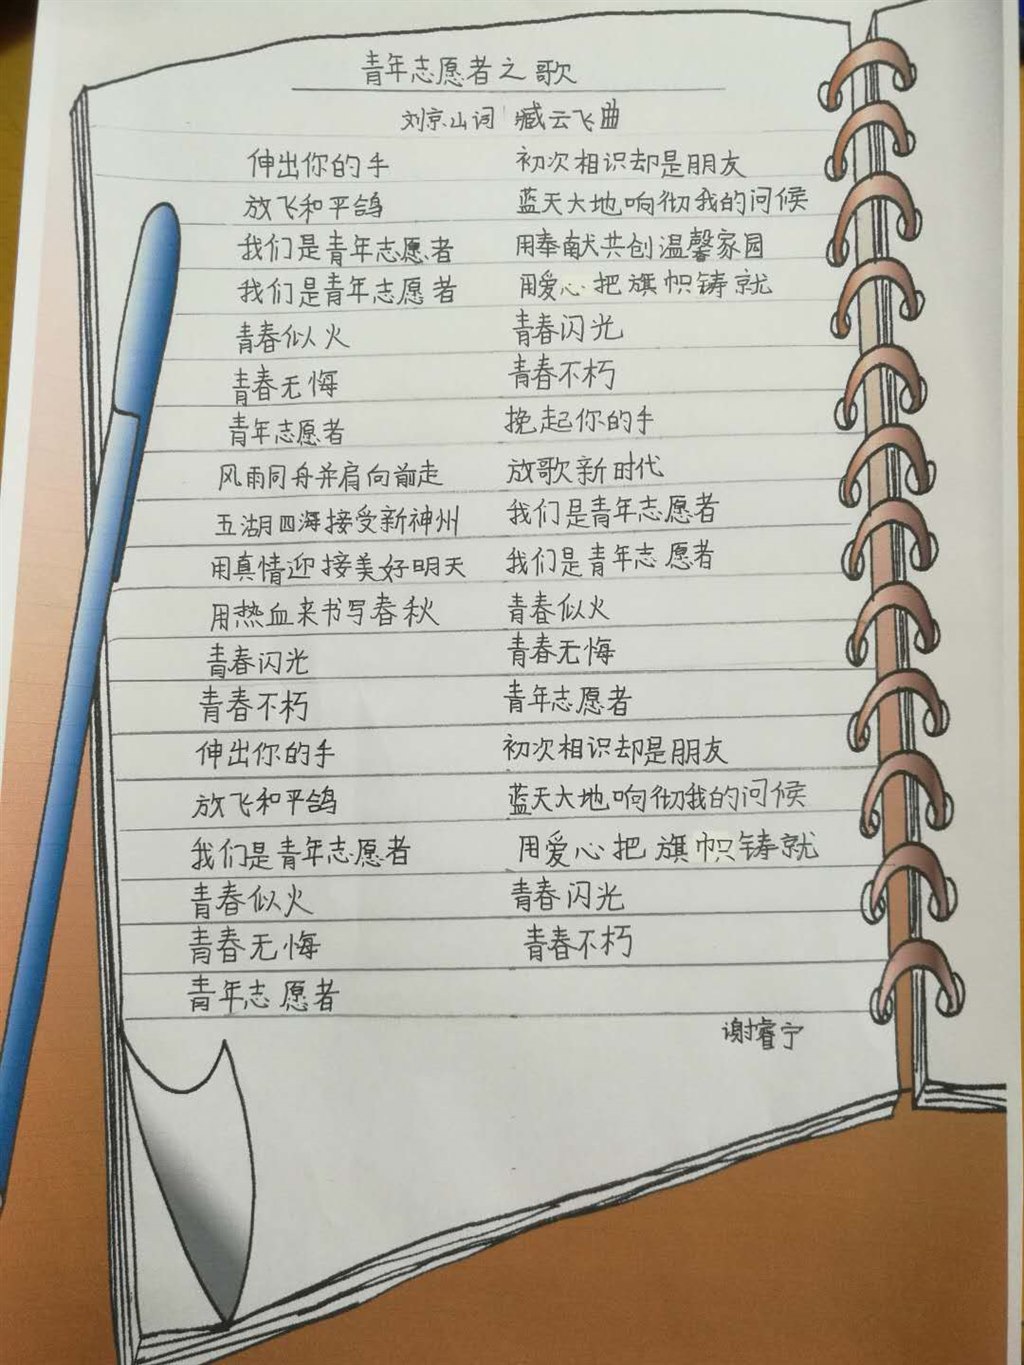 青年志愿者之歌
刘京山词 臧云飞曲
伸出你的手
放飞和平鸽
我们是青年志愿者
我们是青年志愿者
青春似火
青春无悔
青年志愿者
风雨同舟并肩向前走
五湖四海接受新神州
用真情迎接美好明天
用热血来书写春秋
青春闪光
青春不朽
伸出你的手
放飞和平鸽
我们是青年志愿者
青春似火
青春无悔
青年志愿者
初次相识却是朋友
蓝天大地响彻我的问候
用奉献共创温馨家园
用爱心把旗帜铸就
青春闪光
青春不朽
挽起你的手
放歌新时代
我们是青年志愿者
我们是青年志愿者
青春似火
青春无悔
青年志愿者
初次相识却是朋友
蓝天大地响彻我的问候
用爱心把旗帜铸就
青春闪光
青春不朽
谢睿宁